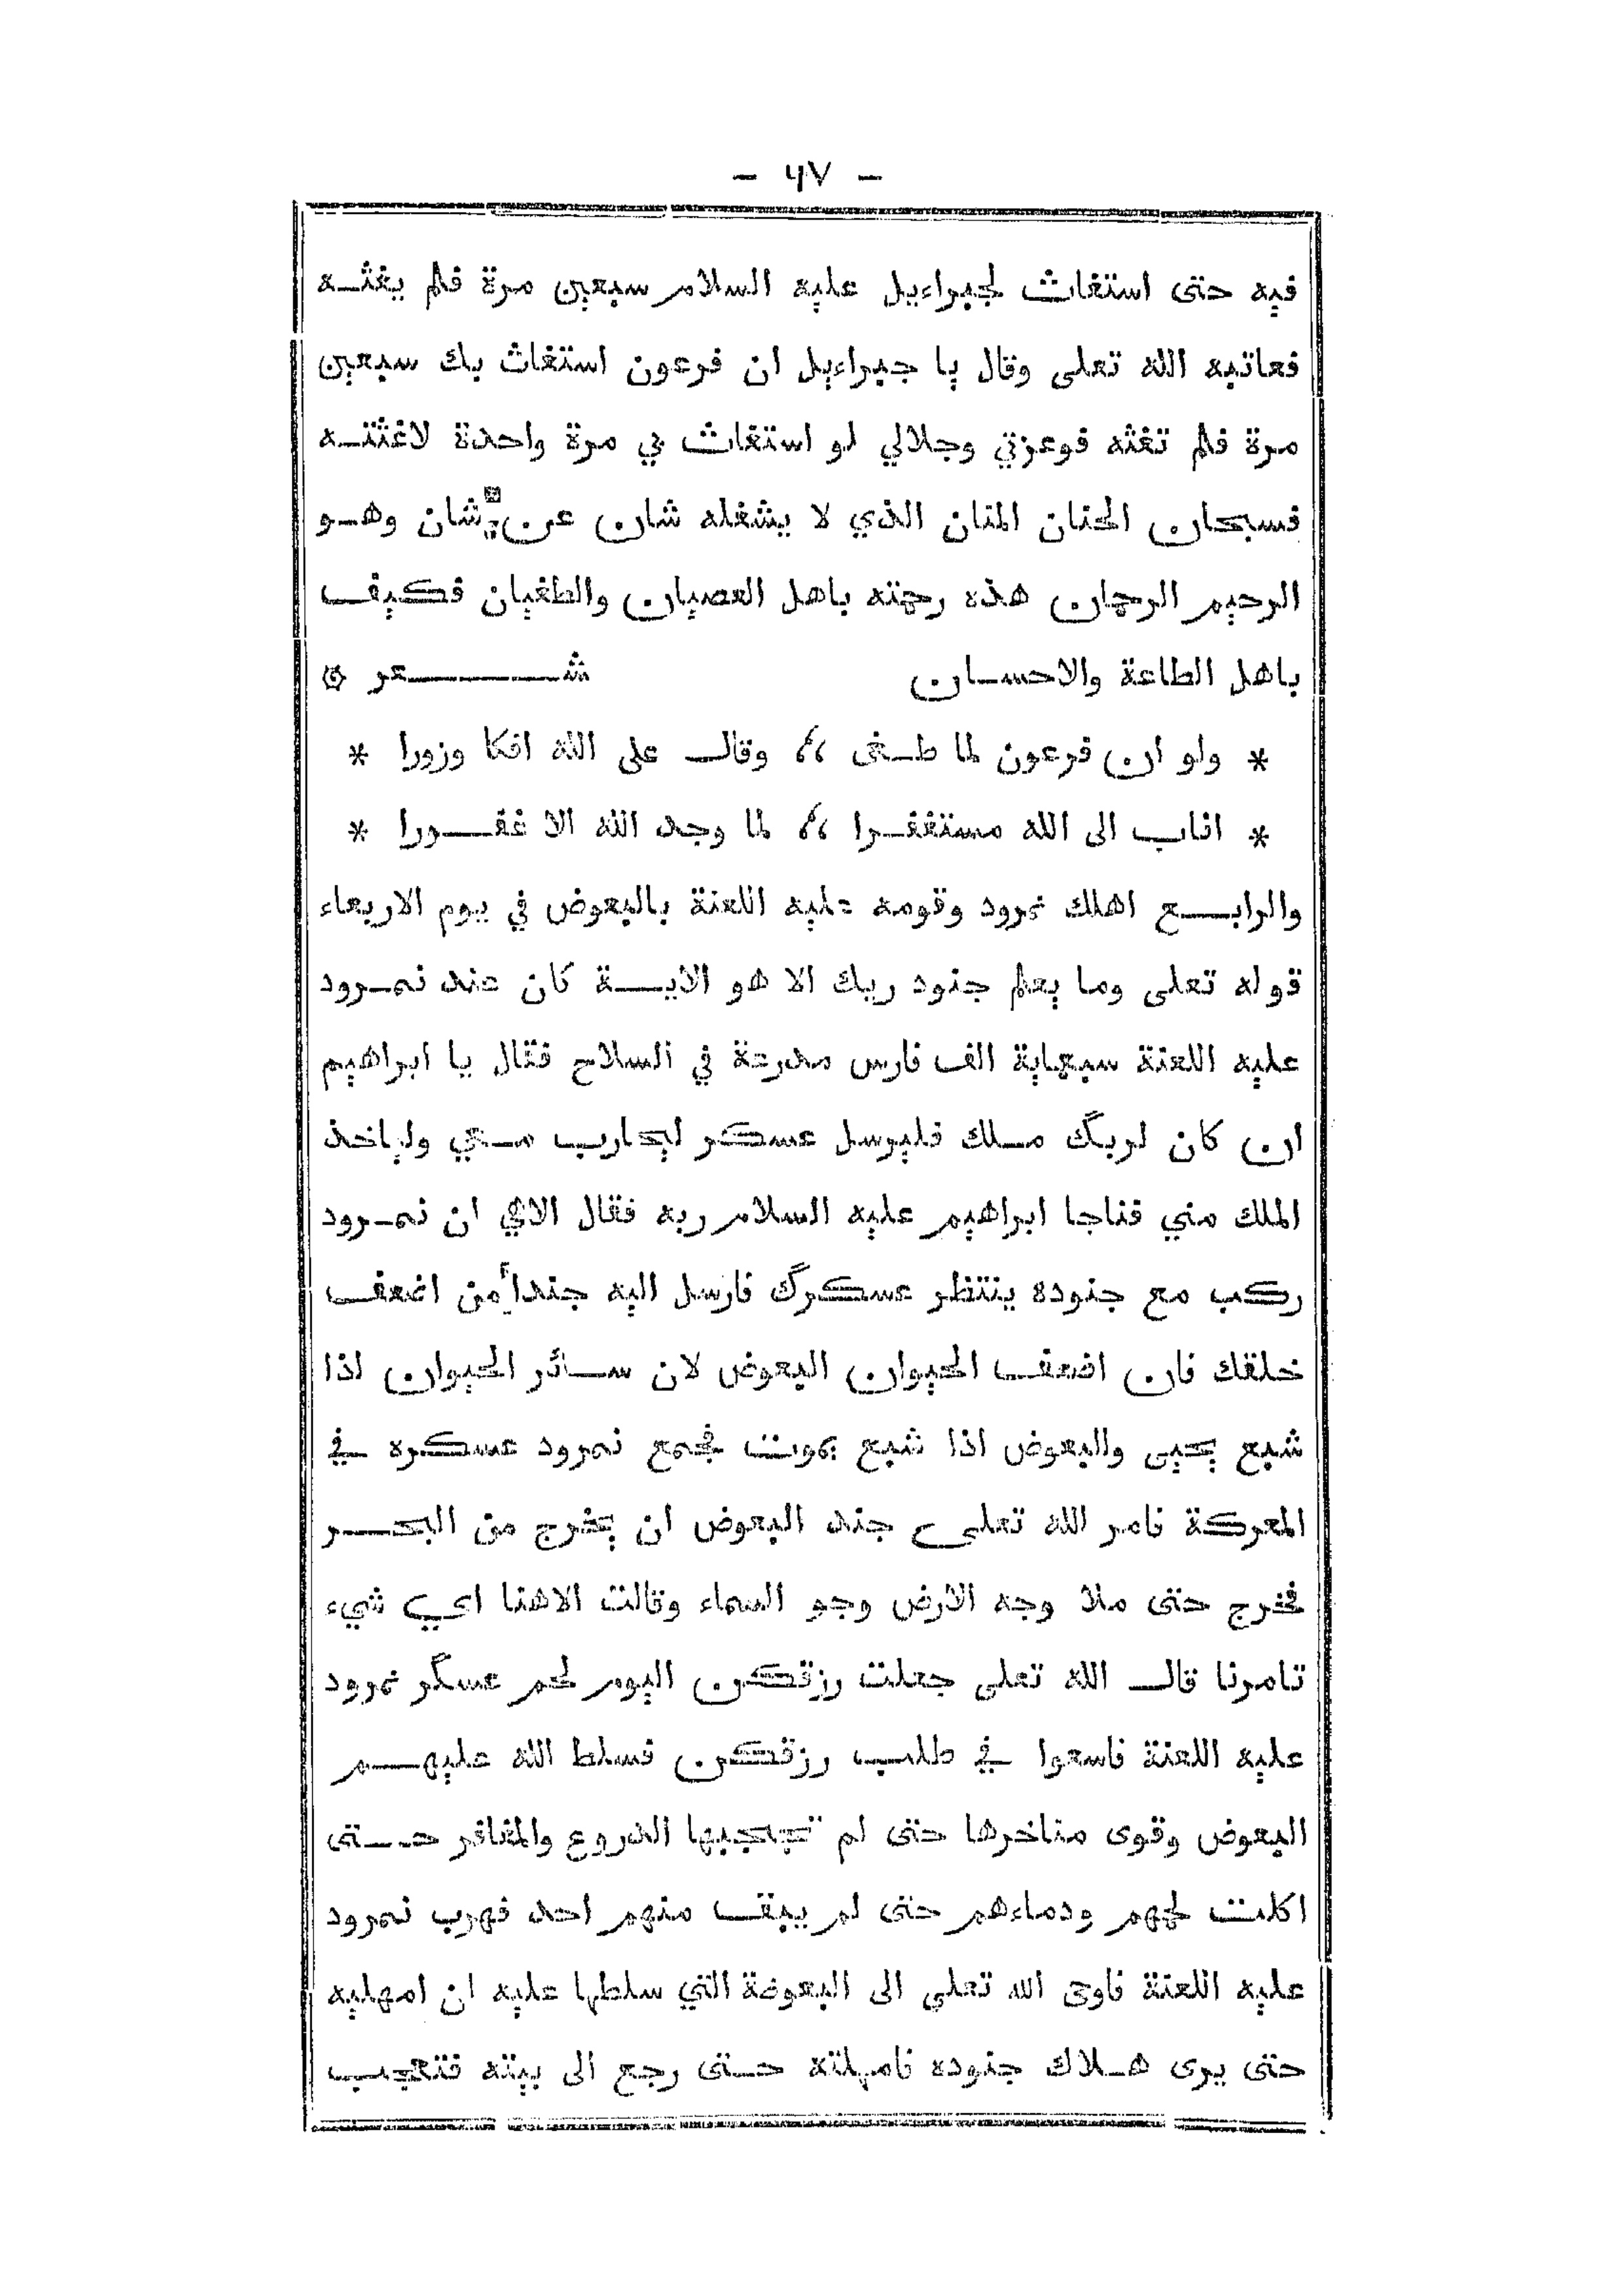 - ٤٧ -
فيه حتى استغاث لجبراءيل عليه السلام سبعين مرة فلم يغثه
فعاتبه الله تعلى وقال يا جبراءيل ان فرعون استغاث بك سبعين
مرة فلم تغثه فوعزتي وجلالي لو استغاث بي مرة واحدة لاغثته
فسبحان الحنان المنان الذي لا يشغله شان عن شان وهو
الرحيم الرحمان هذه رحمته باهل العصيان والطغيان فكيف
باهل الطاعة والاحسان شعر ۞
* ولو ان فرعون لما طغى ،، وقال على الله افكا وزورا *
* اناب الى الله مستغفرا ،، لما وجد الله الا غفورا *
والرابع اهلك نمرود وقومه عليه اللعنة بالبعوض في يوم الاربعاء
قوله تعلى وما يعلم جنود ربك الا هو الاية كان عند نمرود
عليه اللعنة سبعماية الف فارس مدرعة في السلاح فقال يا ابراهيم
ان كان لربك ملك فليرسل عسكر ليحارب معي ولياخذ
الملك مني فناجا ابراهيم عليه السلام ربه فقال الاهي ان نمرود
ركب مع جنوده ينتظر عسكرك فارسل اليه جنداً من اضعف
خلقك فان اضعف الحيوان البعوض لان سائر الحيوان اذا
شبع يحيى والبعوض اذا شبع يموت فجمع نمرود عسكره في
المعركة فامر الله تعلى جند البعوض ان يخرج من البحر
فخرج حتى ملا وجه الارض وجو السماء وقالت الاهنا اي شيء
تامرنا قال الله تعلى جعلت رزقكن اليوم لحم عسكر نمرود
عليه اللعنة فاسعوا في طلب رزقكن فسلط الله عليهم
البعوض وقوى مناخرها حتى لم تحجبها الدروع والمغافر حتى
اكلت لحمهم ودماءهم حتى لم يبق منهم احد فهرب نمرود
عليه اللعنة فاوحى الله تعلى الى البعوضة التي سلطها عليه ان امهليه
حتى يرى هلاك جنوده فامهلته حتى رجع الى بيته فتعجب